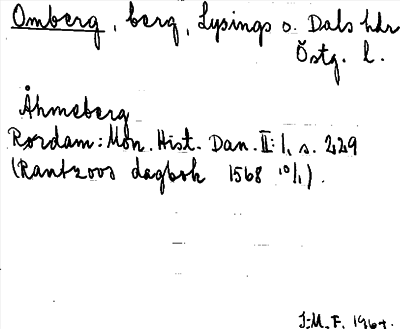 Omberg, berg, Lysings o. Dals hdr
Östg. l.
Åhmsberg
Rordam: Mon. Hist. Dan. II: 1, s. 229
(Rantzoos dagbok 1568 10/1).
J.M.F. 1964.